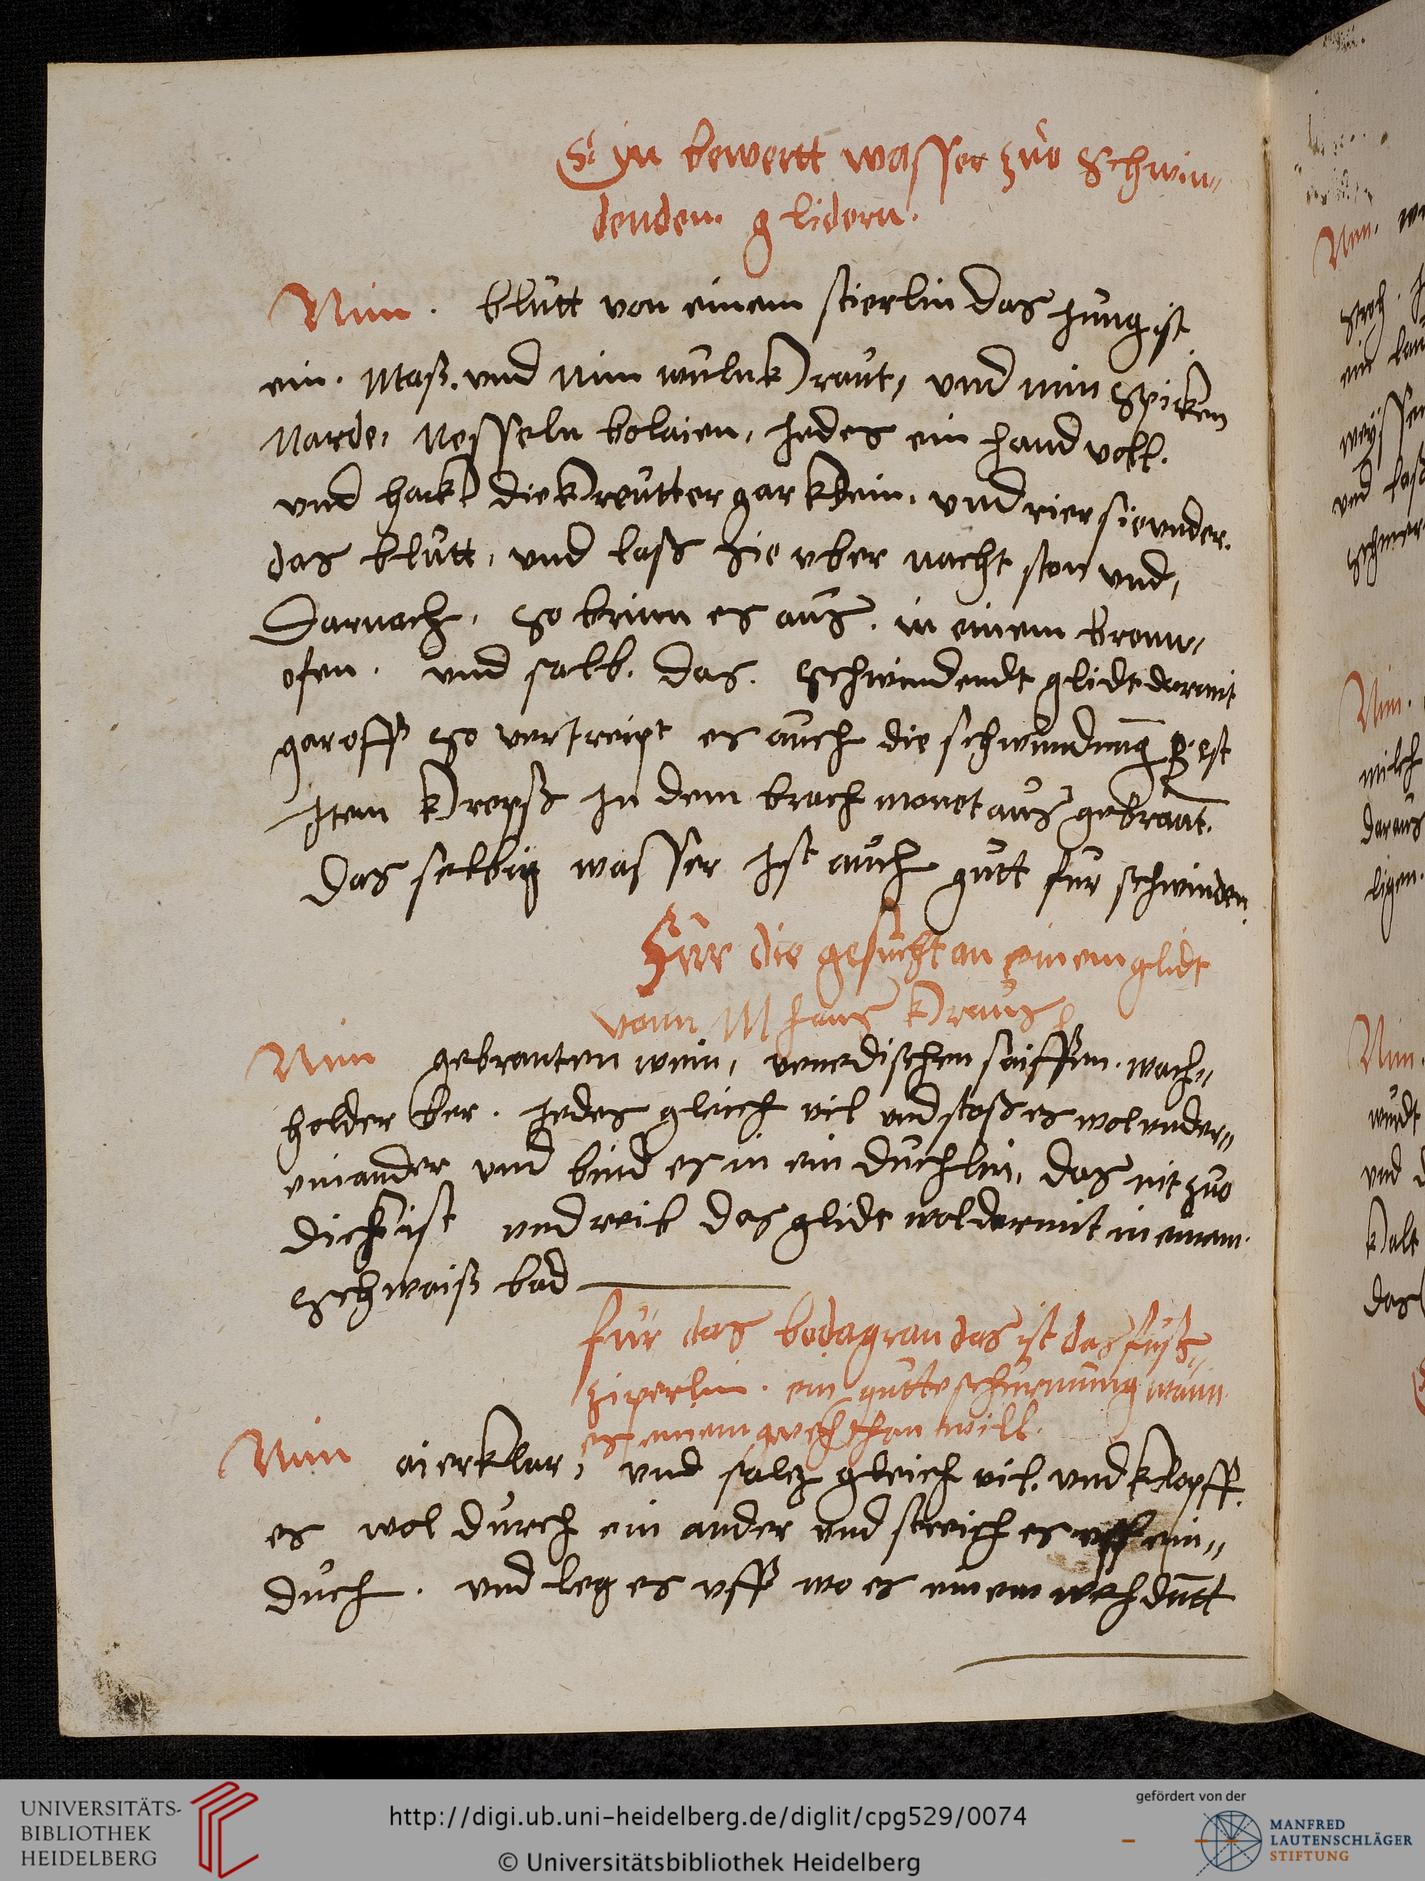 Ein bewertt wasser zuo Schwin„
denden glidern.
Nim. blutt von einem stierlin das Jung ist
ein. Maß. und Nim wulnkraut, und nim Spicken
Narde, Nesseln bolaien, Jedes ein hand voll.
und hack die kreutter gar klein. und rier sie under.
das blutt, und lass sie uber nacht ston und,
Darnach, so brinn es aus. in einem Brenn„
ofen. und salb. das. Schwindendt glidt darmit
gar offt so vertreipt es auch die schwindung gest
Item kreps In dem brachmonet aus gebrant.
Das selbig wasser Ist auch gutt fur schwinden.
Fur die gesucht an einem glidt
vonn M hans kraus
Nim gebranten wein, venedischen saiffen. wach„
holder ber. Jedes gleich vil und stoß es wol under„
einander und bind es in ein duchlin, das nit zuo
dick ist und reib das glidt wol darmit in einem
Schwaiß bad
fur das bodagran das ist das fuß„
ziperlin. ein gutte schirmung wann
es einem wehthan will.
Nim aierklar, und saltz gleich vil. und klopff.
es wol durch ein ander und streich es uff ein„
duch. und leg es uff wo es einem weh dutt
UNIVERSITÄTS-
BIBLIOTHEK
HEIDELBERG
http://digi.ub.uni-heidelberg.de/diglit/cpg529/0074
© Universitätsbibliothek Heidelberg
gefördert von der
MANFRED
LAUTENSCHLÄGER
STIFTUNG